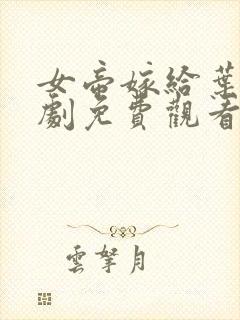 女帝嫁給葉
劇免費觀看
雲拏月